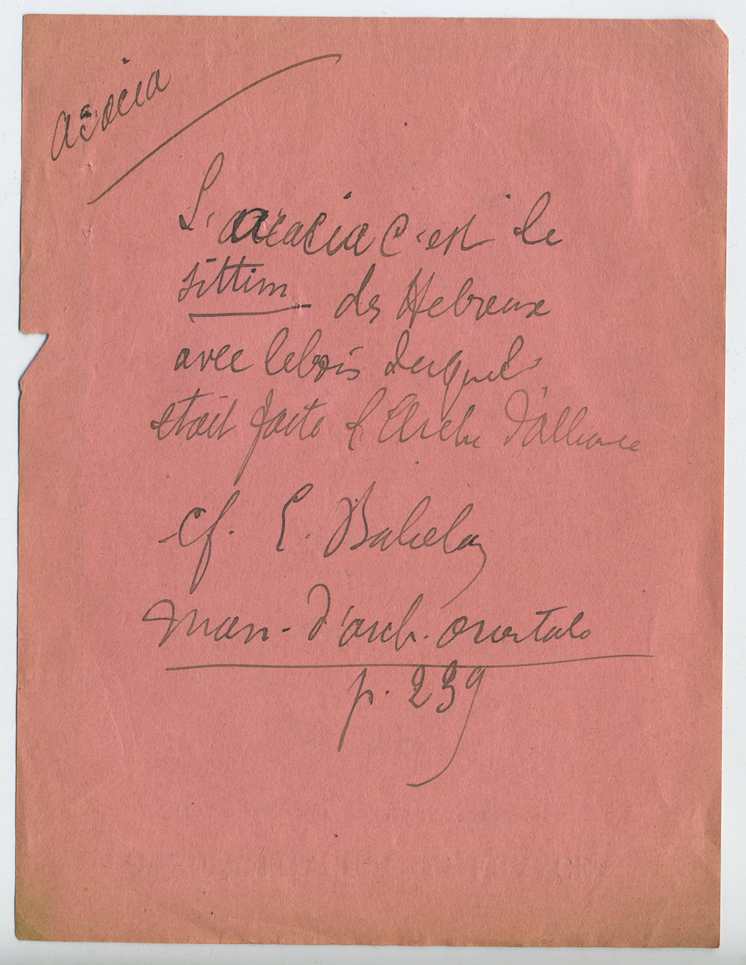 acacia
L'acacia c'est le
sittim des Hebreux
avec le bois duquel
etait faite l'Arche d'alliance
cf. E. Babelon
Man. d'arch. orientale
p. 239